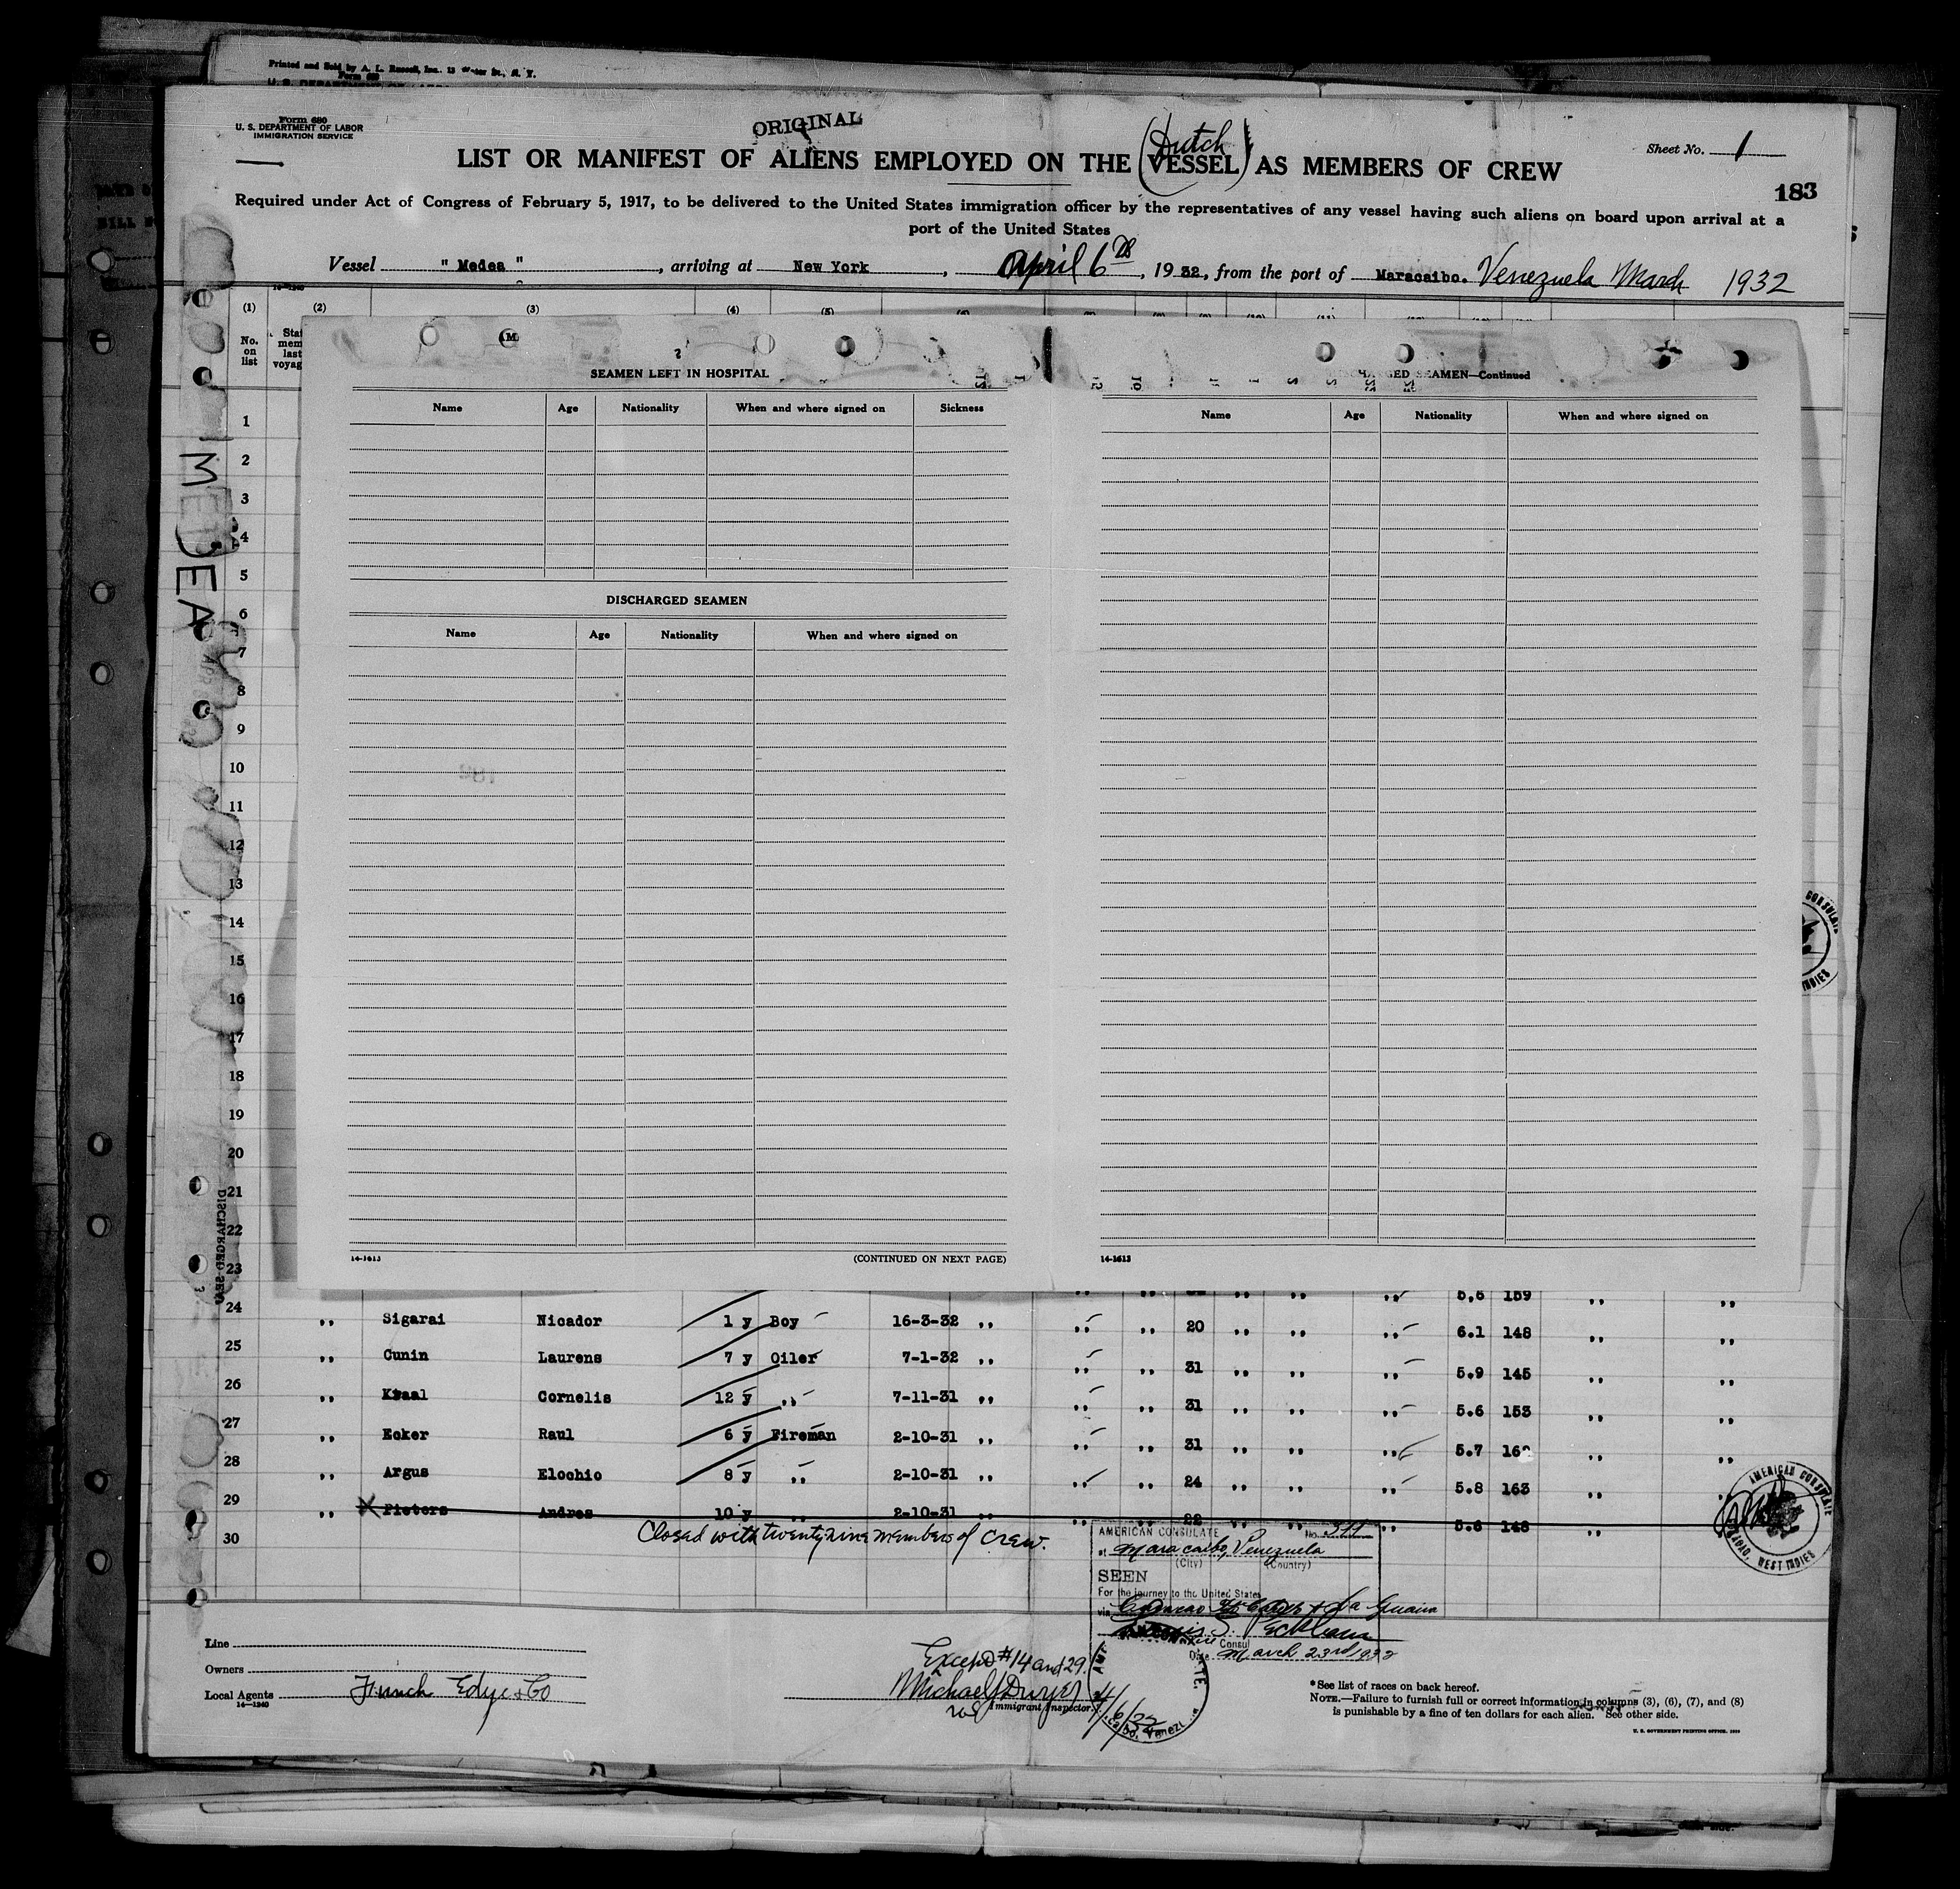 Printed and Sold by A. L. Russell, Inc. 13 Water St., N. Y.
Form 680
U. S. DEPARTMENT OF LABOR
IMMIGRATION SERVICE
ORIGINAL
Sheet No. 1
(Dutch)
LIST OR MANIFEST OF ALIENS EMPLOYED ON THE VESSEL AS MEMBERS OF CREW
183
Required under Act of Congress of February 5, 1917, to be delivered to the United States immigration officer by the representatives of any vessel having such aliens on board upon arrival at a
port of the United States
Vessel " Medea ", arriving at New York, April 6th, 1932, from the port of Maracaibo. Venezuela March 1932
(1) (2) (3) (4) (5)
No. on list
MEDEA
SEAMEN LEFT IN HOSPITAL
Name Age Nationality When and where signed on Sickness
DISCHARGED SEAMEN
Name Age Nationality When and where signed on
14-1613 (CONTINUED ON NEXT PAGE)
SEAMEN—Continued
Name Age Nationality When and where signed on
14-1613
1
2
3
4
5
6
7
8
9
10
11
12
13
14
15
16
17
18
19
20
21
22
23
5.6 159 ,, ,,
24 ,, Sigarai Nicador 1 y Boy 16-3-32 ,, ,, ,, 20 ,, ,, ,, 6.1 148 ,, ,,
25 ,, Cunin Laurens 7 y Oiler 7-1-32 ,, ,, ,, 31 ,, ,, ,, 5.9 145 ,, ,,
26 ,, Kraal Cornelis 12 y ,, 7-11-31 ,, ,, ,, 31 ,, ,, ,, 5.6 153 ,, ,,
27 ,, Ecker Raul 6 y Fireman 2-10-31 ,, ,, ,, 31 ,, ,, ,, 5.7 ,, ,,
28 ,, Argus Elochio 8 y ,, 2-10-31 ,, ,, ,, 24 ,, ,, ,, 5.8 163 ,, ,,
29 ,, X Pieters Andres 10 y ,, 2-10-31 ,, ,, ,, 22 ,, ,, ,, 5.6 148 ,,
30
Closed with twentynine members of crew.
AMERICAN CONSULATE No. 311
at Maracaibo, Venezuela
(City) (Country)
SEEN
For the journey to the United States
via Curacao & La Guaira
Consul
Date March 23rd 1932
AMERICAN CONSULATE
CURACAO, WEST INDIES
Line
Owners
Local Agents Funch Edye & Co
14—1240
Except #14 and 29.
Michael J Dwyer
Immigrant Inspector.
4/6/32
*See list of races on back hereof.
NOTE.—Failure to furnish full or correct information in columns (3), (6), (7), and (8)
is punishable by a fine of ten dollars for each alien. See other side.
U. S. GOVERNMENT PRINTING OFFICE